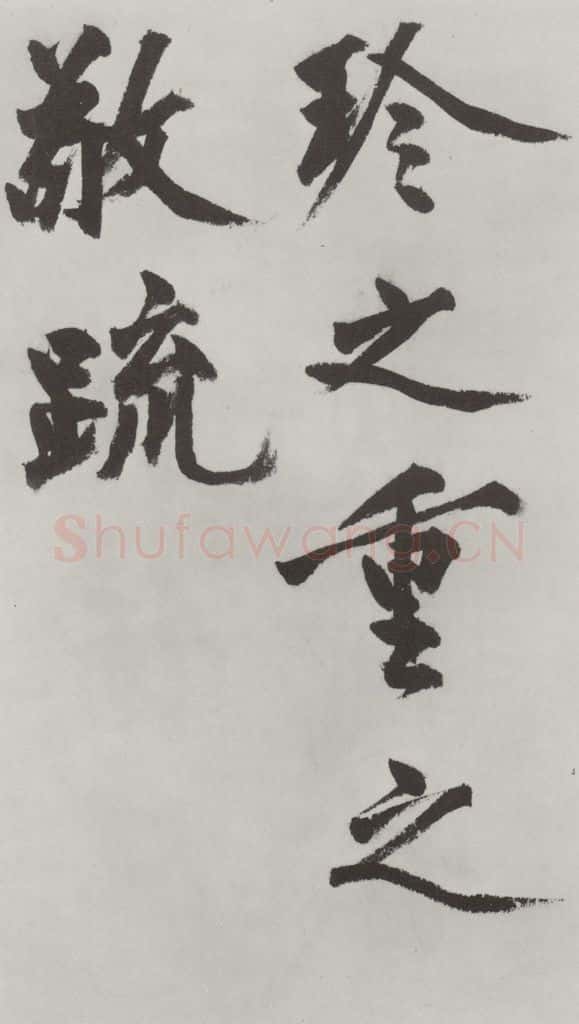 珍之重之
敬疏
Shufawang.CN